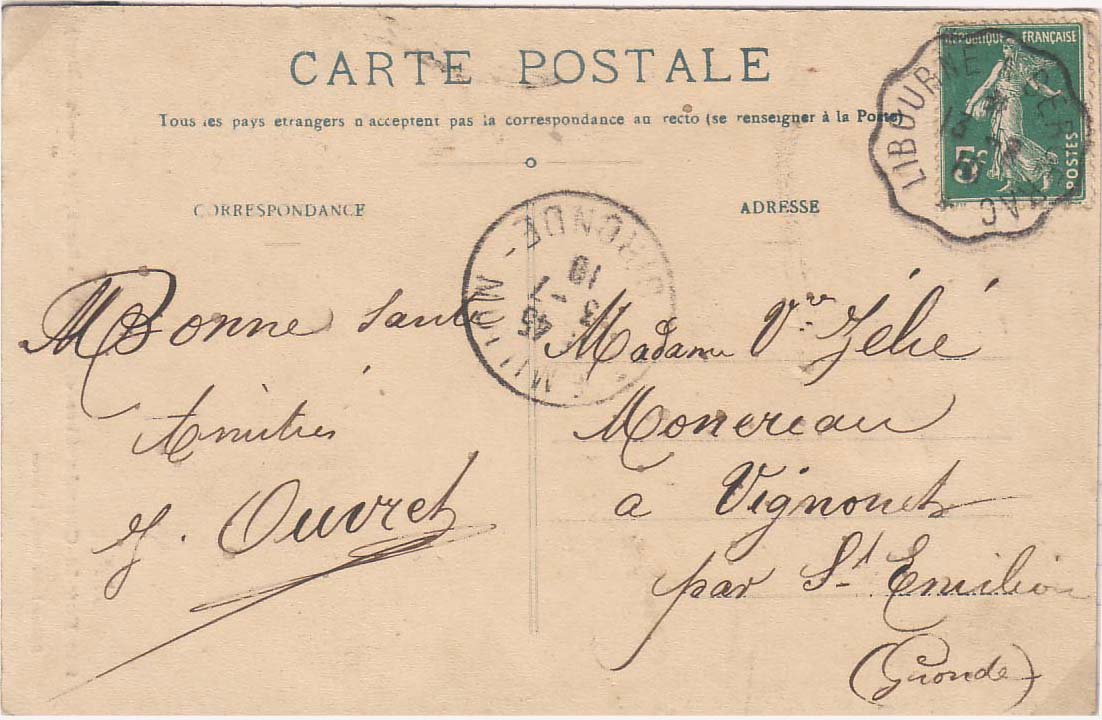 CARTE POSTALE
Tous les pays etrangers n'acceptent pas la correspondance au recto (se renseigner à la Poste)
CORRESPONDANCE
ADRESSE
RÉPUBLIQUE FRANÇAISE
5c
POSTES
LIBOURNE
GIRONDE
45
3 - 7
10
Bonne Santé
Amitiés
J. Ouvret
Madame Vve Zélié
Monereau
a Vignonet
par St Emilion
(Gironde)